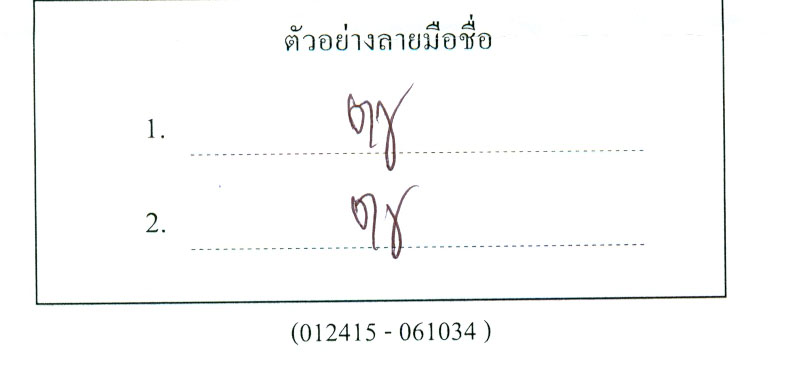 ตัวอย่างลายมือชื่อ
1.
2.
(012415 - 061034 )